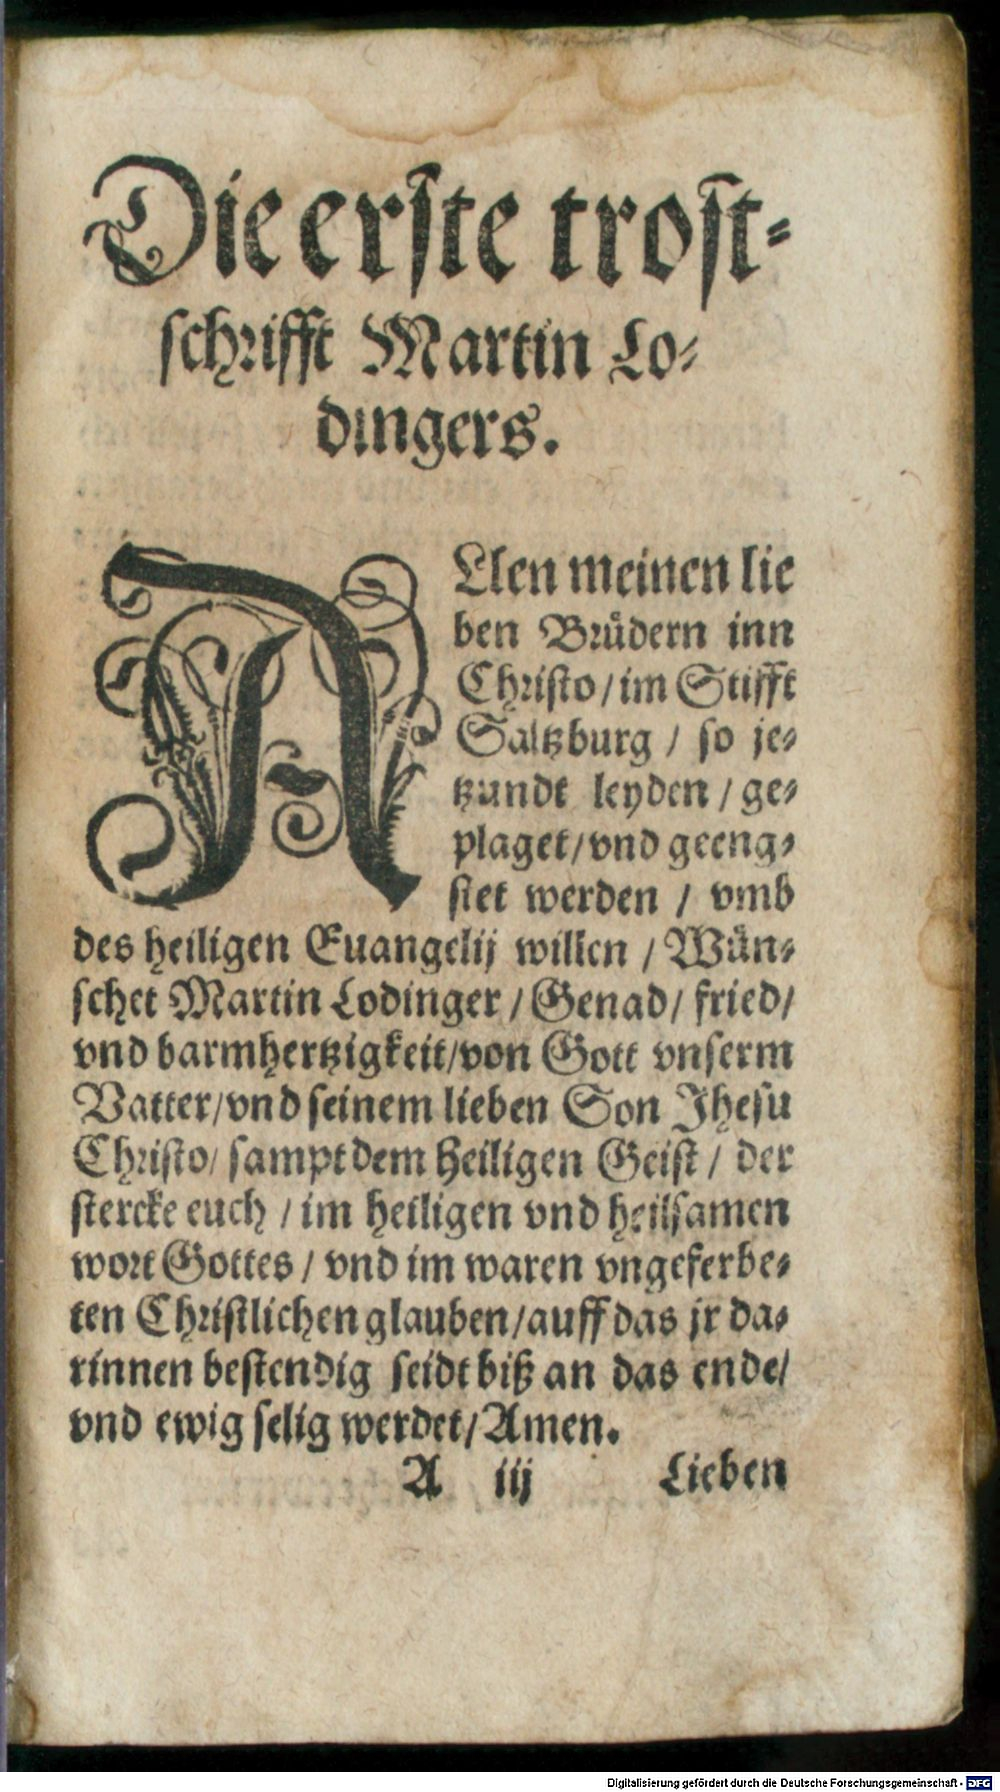 Die erste trost-
schrifft Martin Lo-
dingers.
ALlen meinen lie
ben Bruͤdern inn
Christo / im Stifft
Saltzburg / so je-
tzundt leyden / ge-
plaget / vnd geeng-
stet werden / vmb
des heiligen Euangelij willen / Wün-
schet Martin Lodinger / Genad / fried /
vnd barmhertzigkeit / von Gott vnserm
Vatter / vnd seinem lieben Son Jhesu
Christo / sampt dem heiligen Geist / der
stercke euch / im heiligen vnd heilsamen
wort Gottes / vnd im waren vngeferbe-
ten Christlichen glauben / auff das jr da-
rinnen bestendig seidt biß an das ende /
vnd ewig selig werdet / Amen.
A iij Lieben
Digitalisierung gefördert durch die Deutsche Forschungsgemeinschaft - DFG